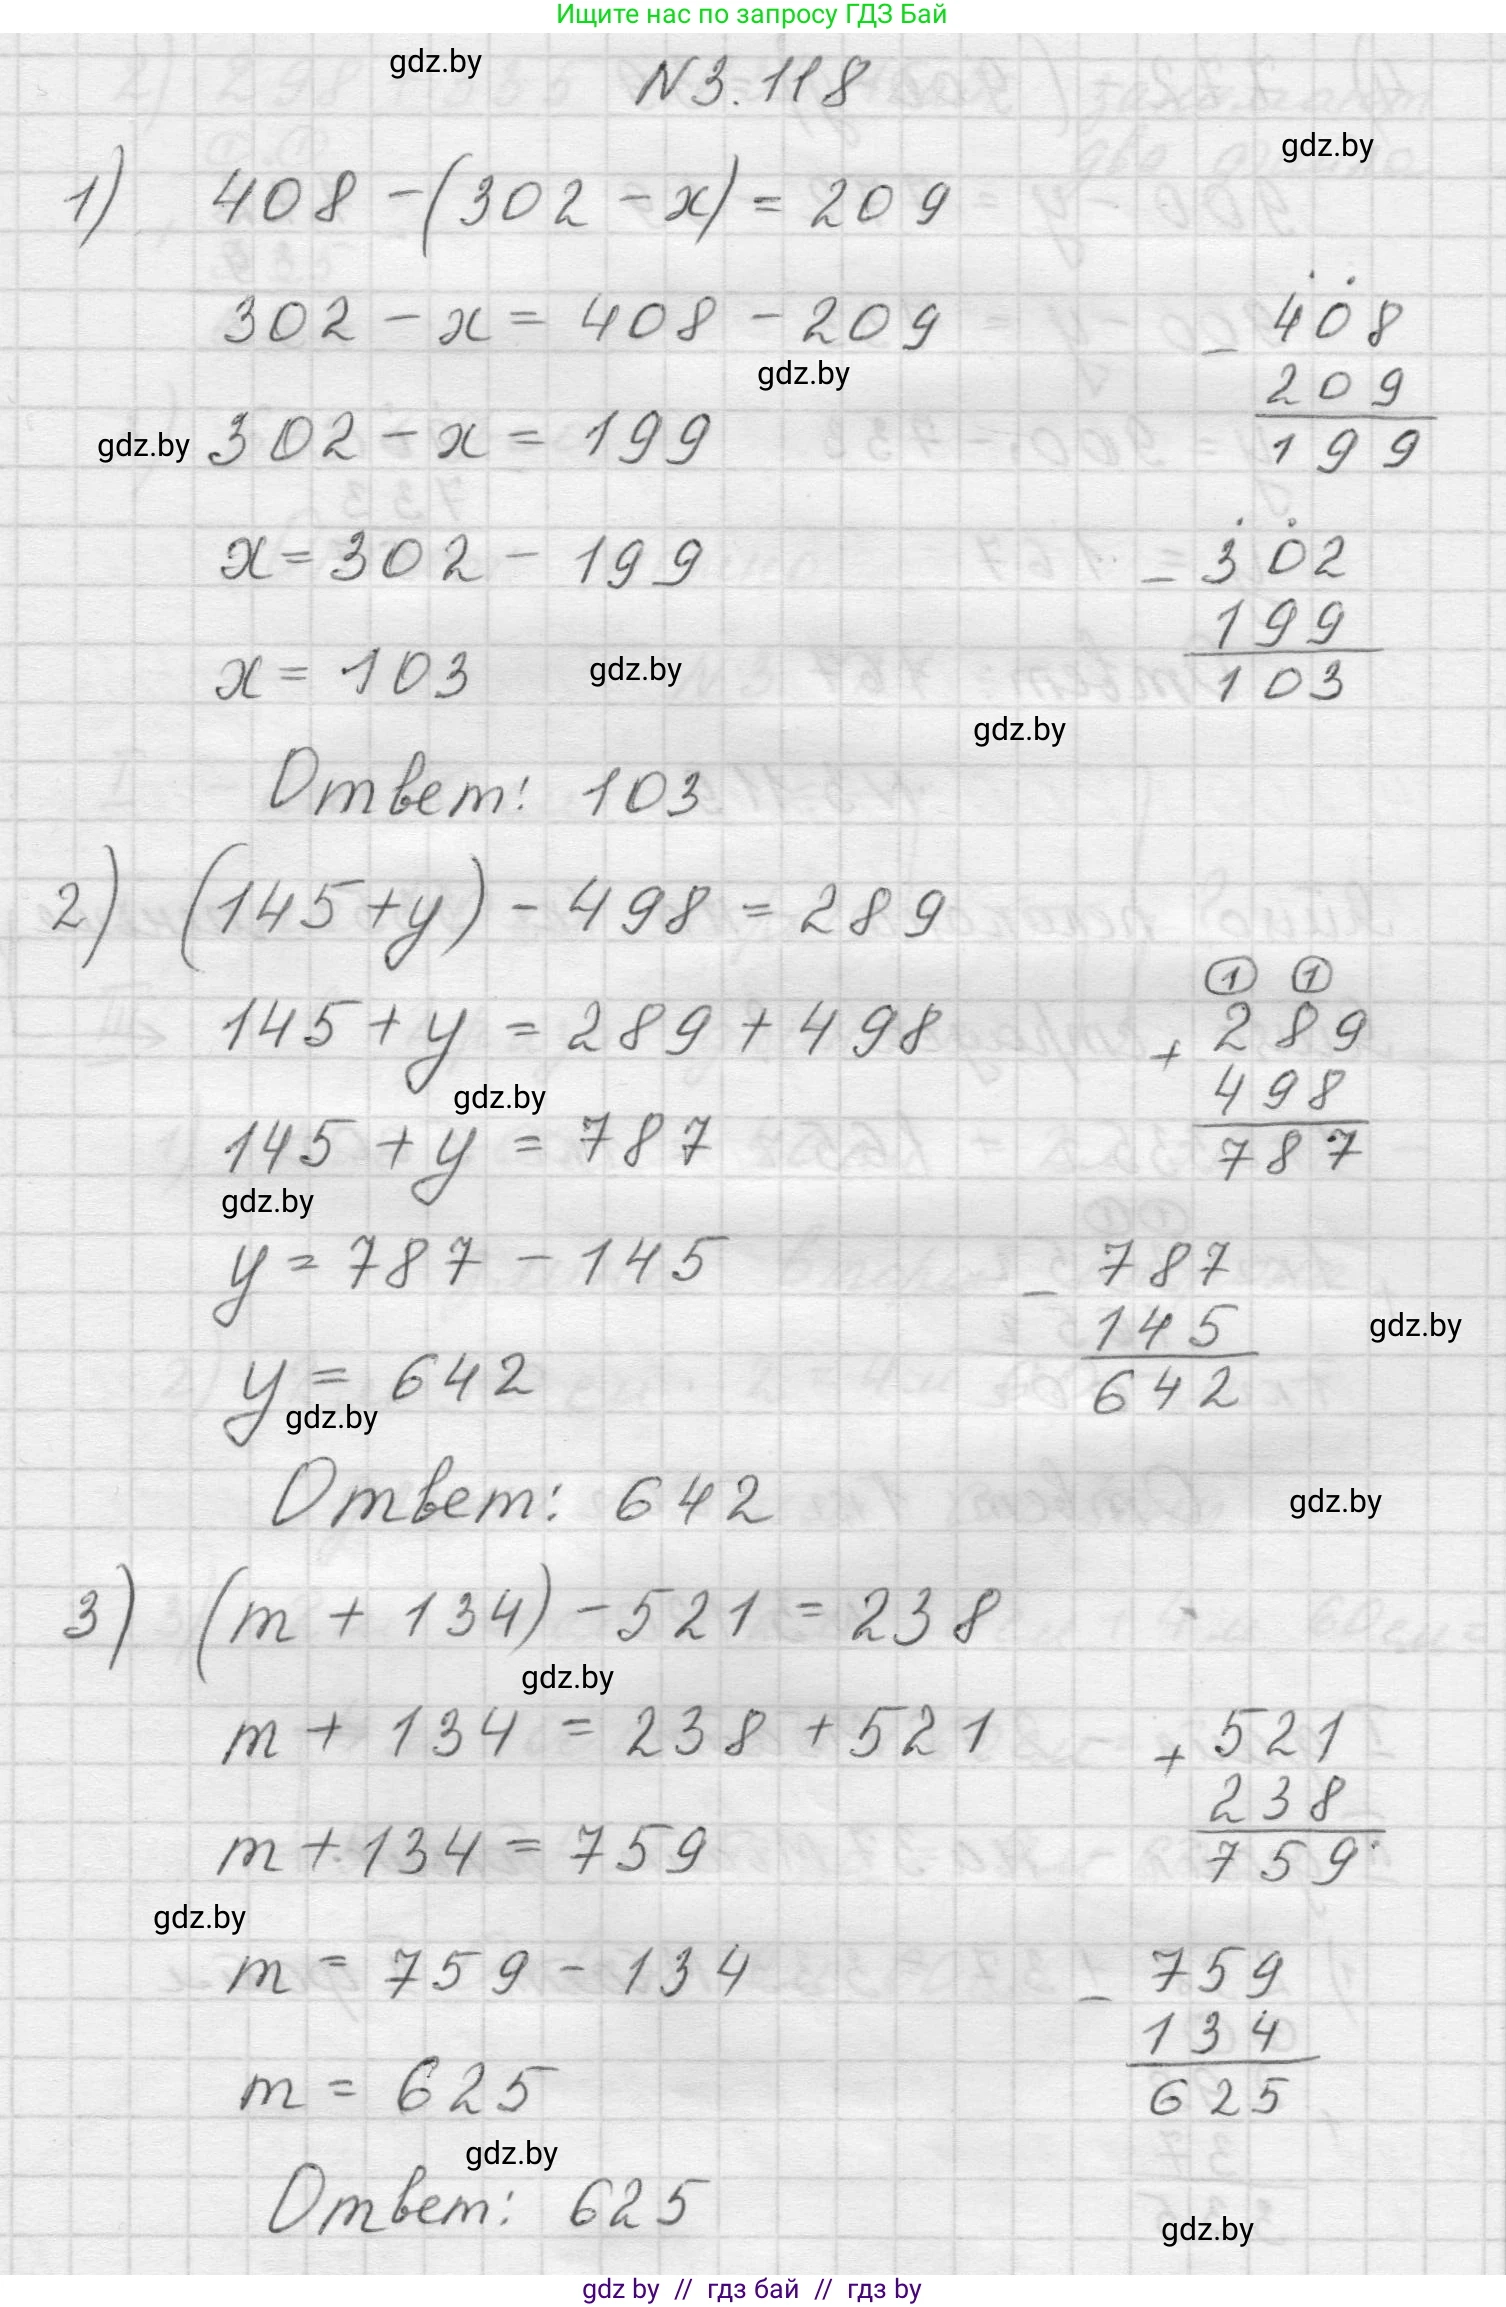 Ищите нас по запросу ГДЗ Бай
gdz.by
N3.118
gdz.by
1) 408 - (302 - x) = 209
302 - x = 408 - 209
- 408
209
199
gdz.by
gdz.by
302 - x = 199
x = 302 - 199
- 302
199
103
x = 103
gdz.by
gdz.by
Ответ: 103
2) (145 + y) - 498 = 289
145 + y = 289 + 498
1 1
+ 289
498
787
gdz.by
145 + y = 787
gdz.by
y = 787 - 145
- 787
145
642
gdz.by
y = 642
gdz.by
Ответ: 642
gdz.by
3) (m + 134) - 521 = 238
gdz.by
m + 134 = 238 + 521
+ 521
238
759
m + 134 = 759
gdz.by
m = 759 - 134
- 759
134
625
m = 625
gdz.by
Ответ: 625
gdz.by
gdz by // гдз бай // гдз by